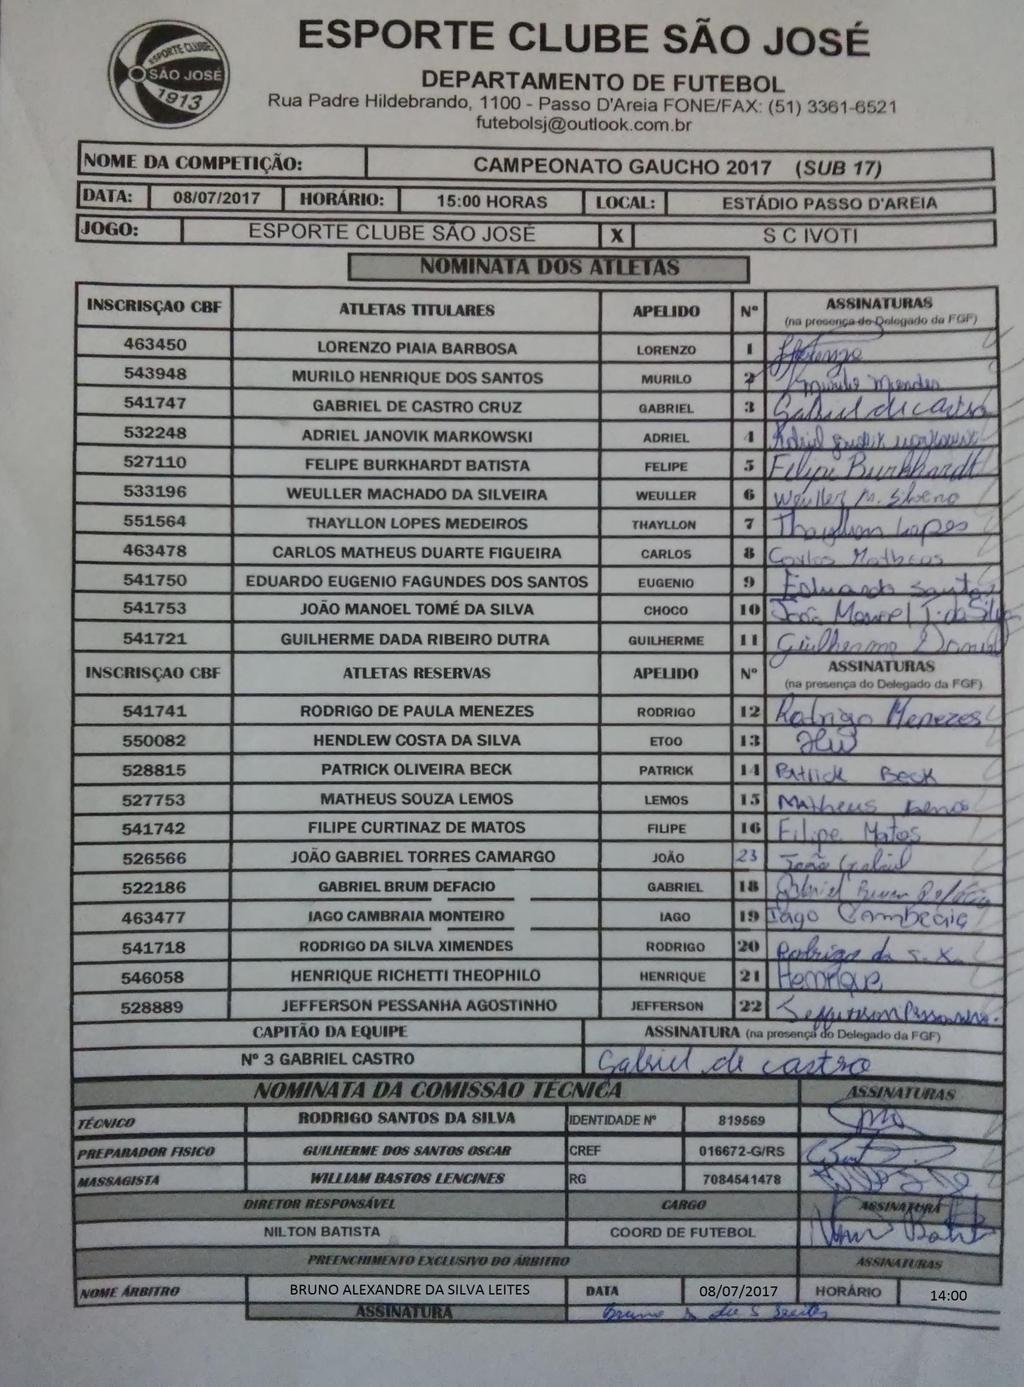 ESPORTE CLUBE SÃO JOSÉ 1913
ESPORTE CLUBE SÃO JOSÉ
DEPARTAMENTO DE FUTEBOL
Rua Padre Hildebrando, 1100 - Passo D'Areia FONE/FAX: (51) 3361-6521
futebolsj@outlook.com.br
NOME DA COMPETIÇÃO: CAMPEONATO GAUCHO 2017 (SUB 17)
DATA: 08/07/2017 HORÁRIO: 15:00 HORAS LOCAL: ESTÁDIO PASSO D'AREIA
JOGO: ESPORTE CLUBE SÃO JOSÉ X S C IVOTI
NOMINATA DOS ATLETAS
INSCRISÇAO CBF ATLETAS TITULARES APELIDO Nº ASSINATURAS
(na presença do Delegado da FGF)
463450 LORENZO PIAIA BARBOSA LORENZO 1
543948 MURILO HENRIQUE DOS SANTOS MURILO 2 Murilo Mendes
541747 GABRIEL DE CASTRO CRUZ GABRIEL 3 Gabriel de castro
532248 ADRIEL JANOVIK MARKOWSKI ADRIEL 4 Adriel
527110 FELIPE BURKHARDT BATISTA FELIPE 5 Felipe Burkhardt
533196 WEULLER MACHADO DA SILVEIRA WEULLER 6 Weuller M.
551564 THAYLLON LOPES MEDEIROS THAYLLON 7 Thayllon Lopes
463478 CARLOS MATHEUS DUARTE FIGUEIRA CARLOS 8 Carlos Matheus
541750 EDUARDO EUGENIO FAGUNDES DOS SANTOS EUGENIO 9 Eduardo Santos
541753 JOÃO MANOEL TOMÉ DA SILVA CHOCO 10 João Manoel T. da Silva
541721 GUILHERME DADA RIBEIRO DUTRA GUILHERME 11 Guilherme
INSCRISÇAO CBF ATLETAS RESERVAS APELIDO Nº ASSINATURAS
(na presença do Delegado da FGF)
541741 RODRIGO DE PAULA MENEZES RODRIGO 12 Rodrigo Menezes
550082 HENDLEW COSTA DA SILVA ETOO 13
528815 PATRICK OLIVEIRA BECK PATRICK 14 Patrick Beck
527753 MATHEUS SOUZA LEMOS LEMOS 15 Matheus Lemos
541742 FILIPE CURTINAZ DE MATOS FILIPE 16 Filipe Matos
526566 JOÃO GABRIEL TORRES CAMARGO JOÃO 23 João Gabriel
522186 GABRIEL BRUM DEFACIO GABRIEL 18 Gabriel Brum Defácio
463477 IAGO CAMBRAIA MONTEIRO IAGO 19 Iago Cambraia
541718 RODRIGO DA SILVA XIMENDES RODRIGO 20 Rodrigo da S. X.
546058 HENRIQUE RICHETTI THEOPHILO HENRIQUE 21 Henrique
528889 JEFFERSON PESSANHA AGOSTINHO JEFFERSON 22 Jefferson Pessanha
CAPITÃO DA EQUIPE ASSINATURA (na presença do Delegado da FGF)
Nº 3 GABRIEL CASTRO Gabriel de castro
NOMINATA DA COMISSÃO TÉCNICA ASSINATURAS
TÉCNICO RODRIGO SANTOS DA SILVA IDENTIDADE Nº 819569
PREPARADOR FISICO GUILHERME DOS SANTOS OSCAR CREF 016672-G/RS
MASSAGISTA WILLIAM BASTOS LENCINES RG 7084541478
DIRETOR RESPONSÁVEL CARGO ASSINATURA
NILTON BATISTA COORD DE FUTEBOL
PREENCHIMENTO EXCLUSIVO DO ÁRBITRO ASSINATURAS
NOME ÁRBITRO BRUNO ALEXANDRE DA SILVA LEITES DATA 08/07/2017 HORÁRIO 14:00
ASSINATURA Bruno A. da S. Leites